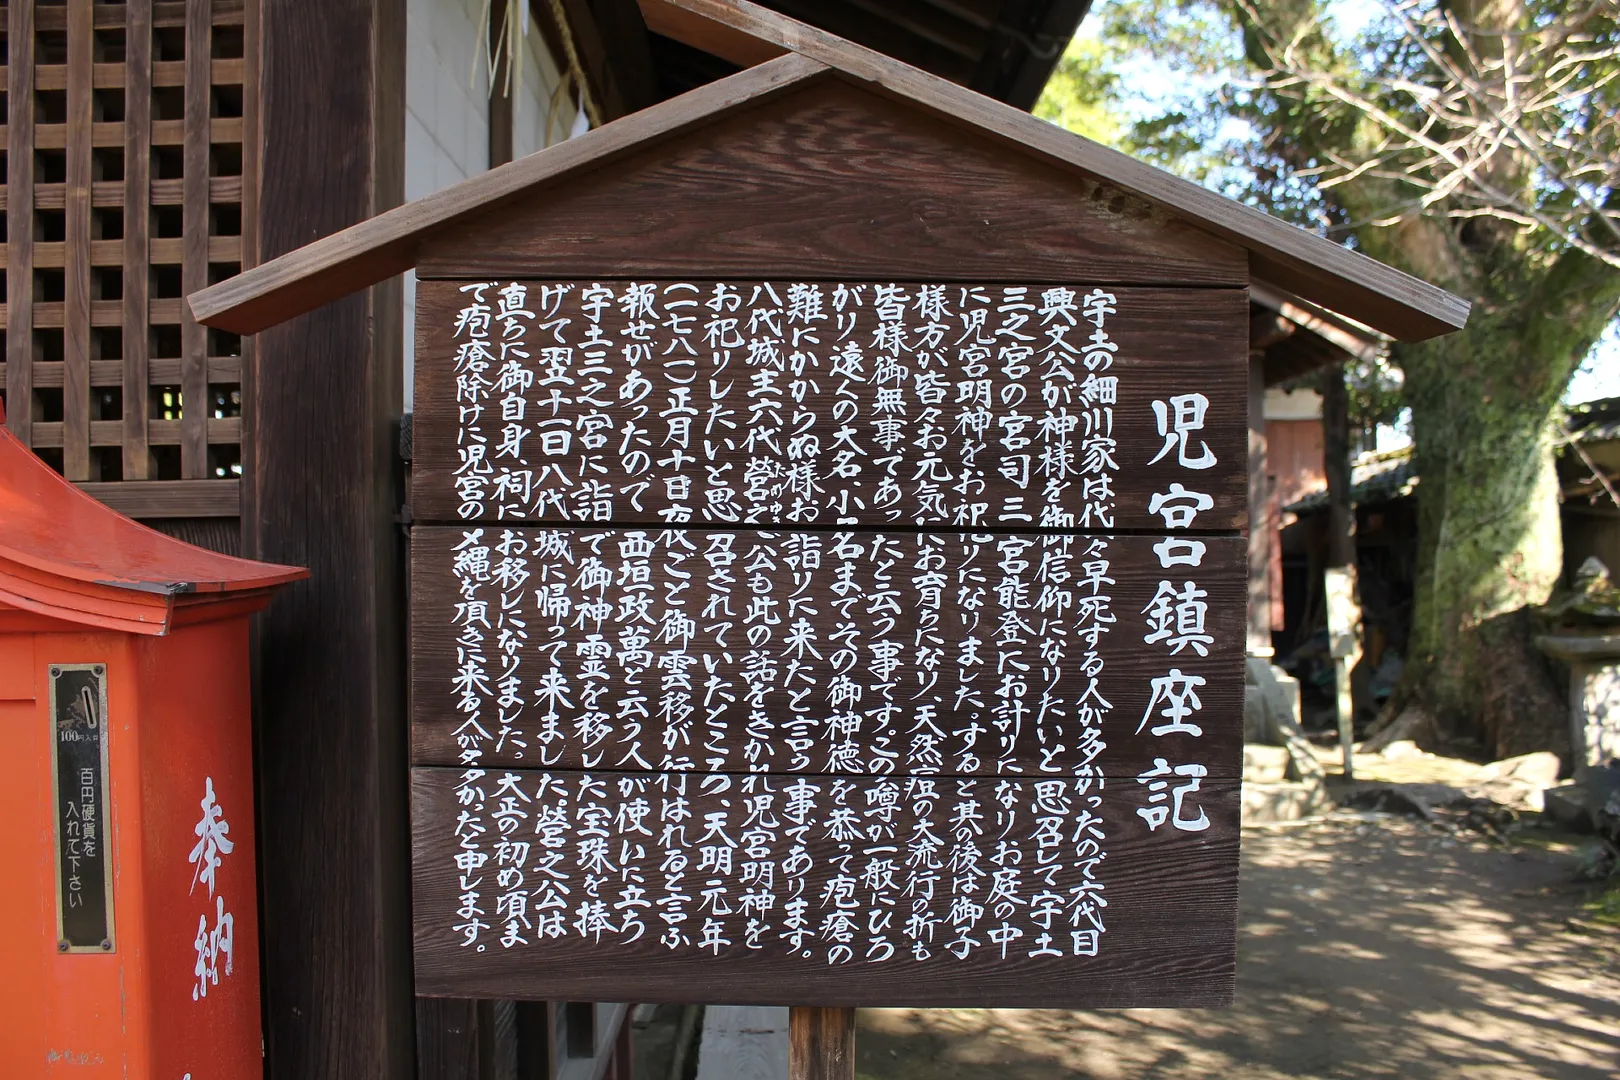 児宮鎮座記
宇土の細川家は代々早死する人が多かったので六代目
興文公が神様を御信仰になりたいと思召して宇土
三之宮の宮司三宮能登にお計りになりお庭の中
に児宮明神をお祀りになりました。すると其の後は御子
様方が皆々お元気にお育ちになり、天然痘の大流行の折も
皆様御無事であったと云う事です。この噂が一般にひろ
がり遠人の大名、小名までその御神徳を恭って疱瘡の
難にかからぬ様お詣りに来たと言う事であります。
八代城主六代営之公も此の話をきかれ児宮明神を
ためゆき
お祀りしたいと思召されていたところ、天明元年
(一七八一)正月十日夜ごと御霊移が行はれると言ふ
報せがあったので西垣政萬と云う人が使いに立ち
宇土三之宮に詣で御神霊を移した宝珠を捧
げて翌十一日八代城に帰って来ました。営之公は
直ちに御自身祠にお移しになりました。大正の初め頃ま
で疱瘡除けに児宮の〆縄を頂きに来る人が多かったと申します。
奉納
100円入口
百円硬貨を
入れて下さい